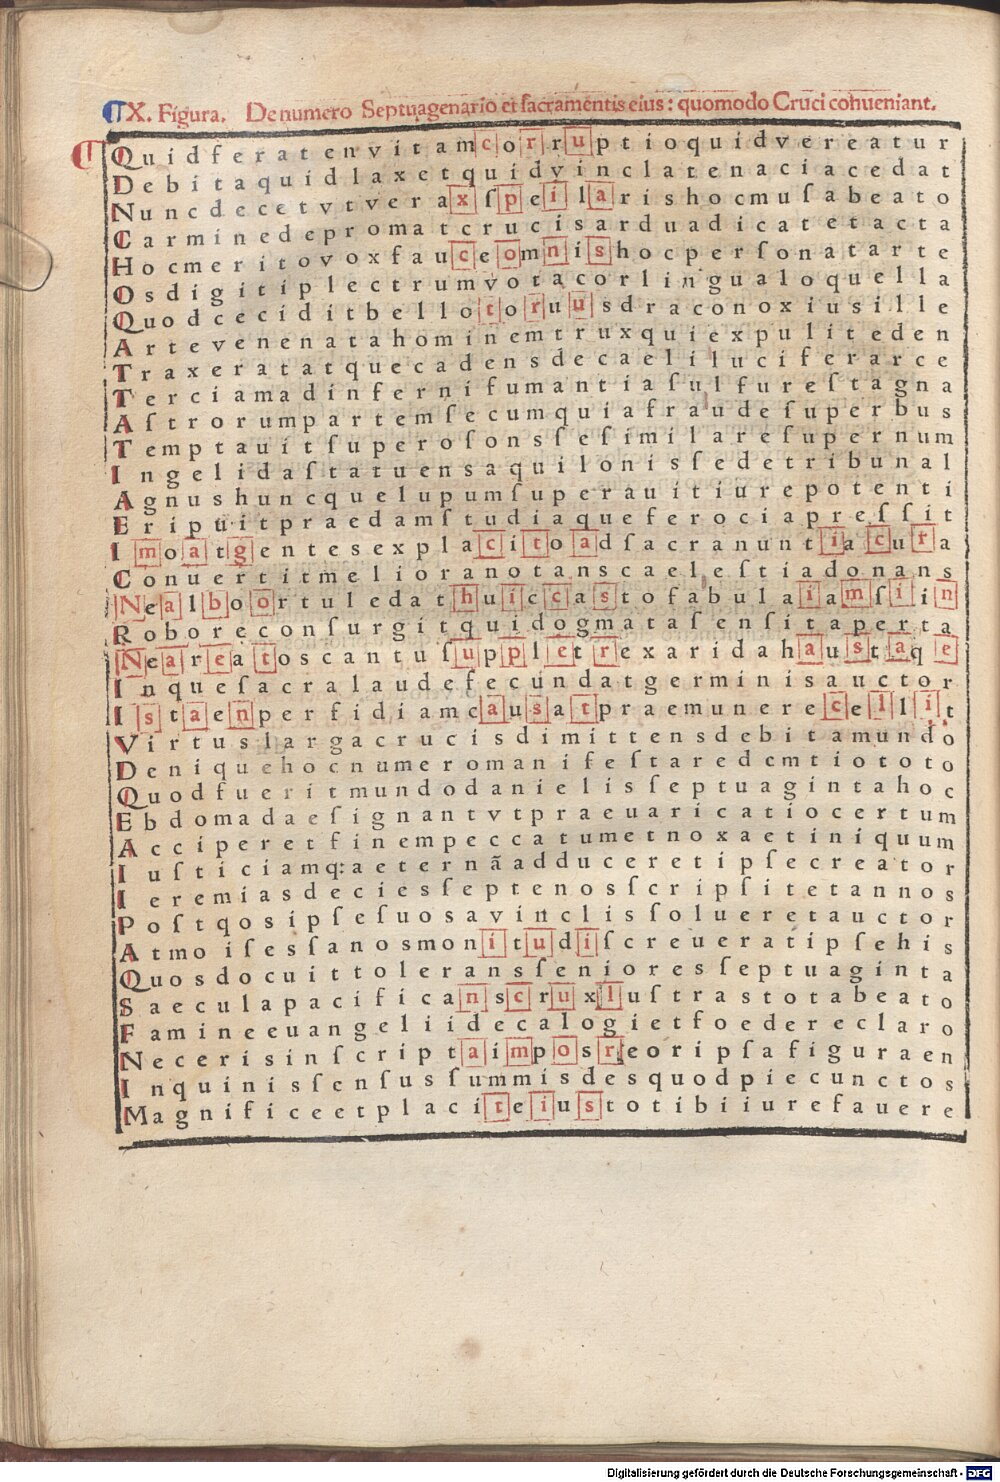 X. Figura. De numero Septuagenario et sacramentis eius: quomodo Cruci cohueniant.
Quidferatenvitamcorruptioquidvereatur
Debitaquidlaxetquidvinclatenaciacedat
Nuncdecetvtveraxſpeilarishocmuſabeato
Carminedepromatcrucisarduadicatetacta
Hocmeritovoxfauceomnishocperſonatarte
Osdigitiplectrumvotacorlingualoquella
Quodceciditbellotoruusdraconoxiusille
Artevenenatahominemtruxquiexpuliteden
Traxeratatquecadensdecaeliluciferarce
Terciamadinferniſumantiaſulfureſtagna
Aſtrorumpartemſecumquiafraudeſuperbus
Temptauitſuperoſonsſeſimilareſupernum
Ingelidaſtatuensaquilonisſedetribunal
Agnushuncquelupumſuperauitiurepotenti
Eripuitpraedamſtudiaqueferociapreſſit
Imoatgentesexplacitoadſacranuntiacura
Conuertitmelioranotanscaeleſtiadonans
Nealboortuledathuiccastofabulaiamſiin
Roboreconſurgitquidogmataſenſitaperta
Neareatoscantuſuppletrexaridahaustaqe
Inqueſacralaudefecundatgerminisauctor
Istaenperfidiamcausatpraemunerecellit
Virtuslargacrucisdimittensdebitamundo
Deniquehocnumeromanifeſtaredemtiototo
Quodfueritmundodanielisſeptuagintahoc
Ebdomadaeſignantvtpraeuaricatiocertum
Acciperetfinempeccatumetnoxaetiniquum
Iuſticiamq:aeternãadduceretipſecreator
Ieremiasdeciesſeptenosſcripſitetannos
Poſtqosipſeſuosavinclisſolueretauctor
Atmoiſesſanosmonitudiſcreueratipſehis
Quosdocuittoleransſenioresſeptuaginta
Saeculapacificanscruxluſtrastotabeato
Famineeuangeliidecalogietfoedereclaro
Necerisinſcriptaimposreoripſafiguraen
Inquinisſenſusſummisdesquodpiecunctos
Magnificeetplaciteiustotibiiurefauere
Digitalisierung gefördert durch die Deutsche Forschungsgemeinschaft - DFG